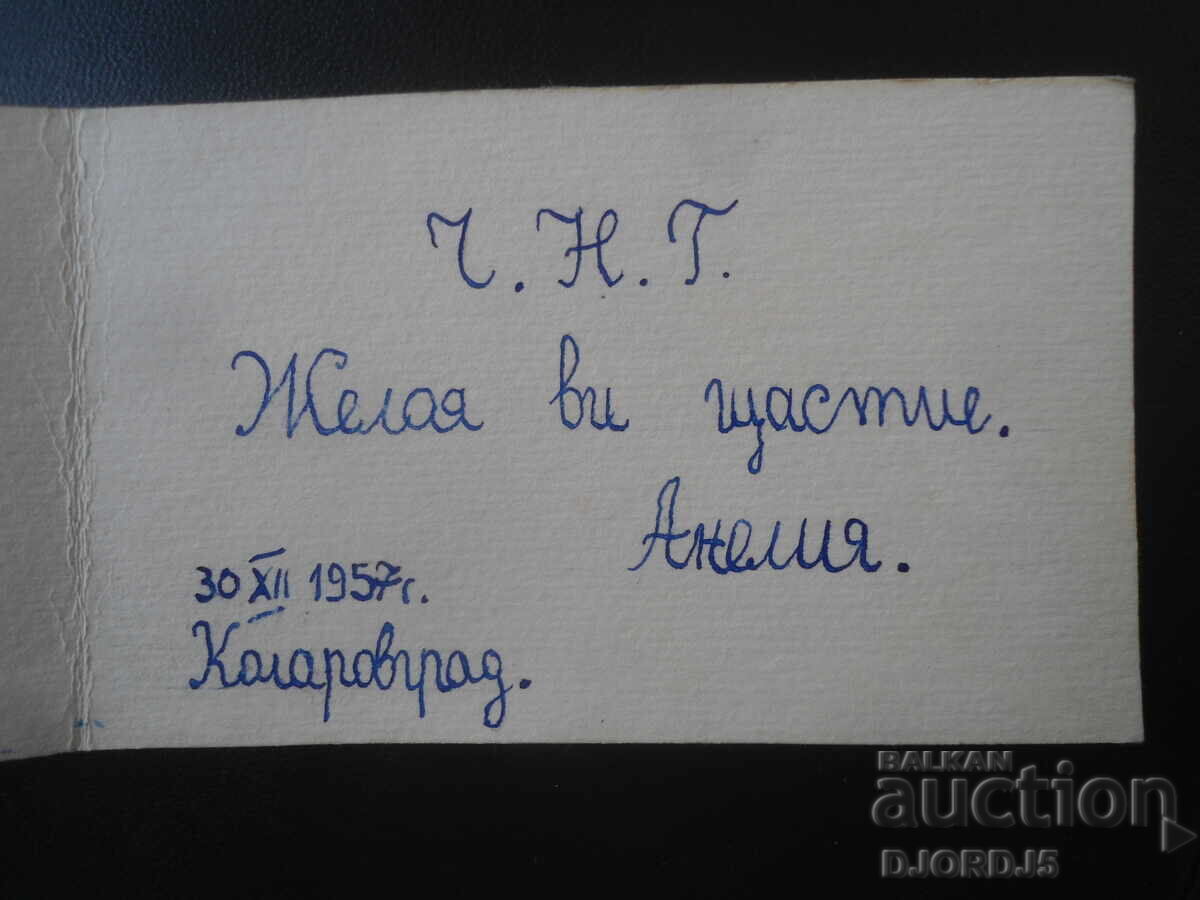 Ч.Н.Г.
Желая ви щастие.
Анелия.
30 XII 1957г.
Коларовград.
BALKAN
auction
DJORDJ5